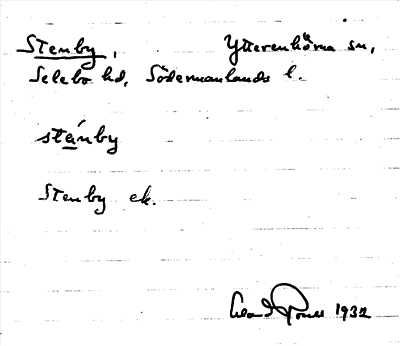 Stenby, Ytterenhörna sn,
Selebo hd, Södermanlands l.
stánby
Stenby ek.
1932